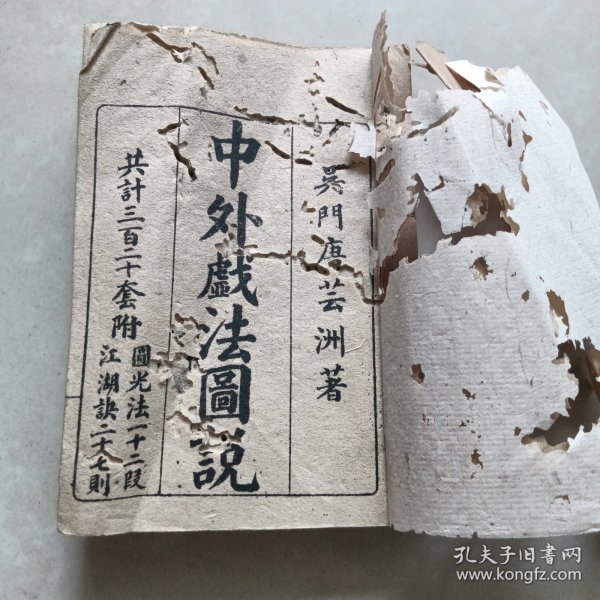 吴門唐芸洲著
中外戲法圖說
共計三百二十套附
圓光法一十二段
江湖訣二十七則
孔夫子旧书网
www.kongfz.com